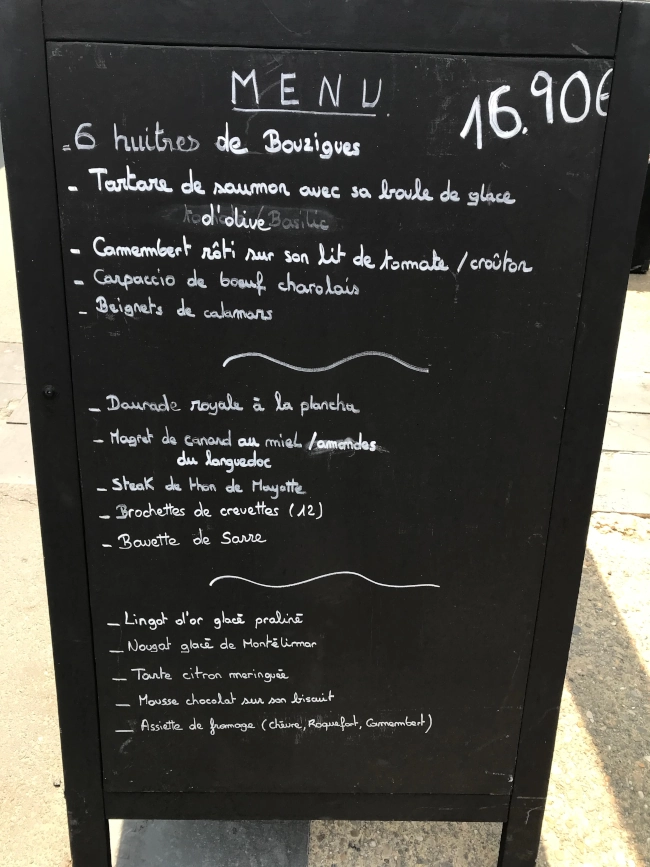 MENU
16.90€
- 6 huîtres de Bouzigues
- Tartare de saumon avec sa boule de glace
d'olive Basilic
- Camembert rôti sur son lit de tomate / croûton
- Carpaccio de boeuf charolais
- Beignets de calamars
- Daurade royale à la plancha
- Magret de canard au miel / amandes
du languedoc
- Steak de thon de Mayotte
- Brochettes de crevettes (12)
- Bavette de Sarre
- Lingot d'or glacé praliné
- Nougat glacé de Montélimar
- Tarte citron meringuée
- Mousse chocolat sur son biscuit
- Assiette de fromage (Chèvre, Roquefort, Camembert)